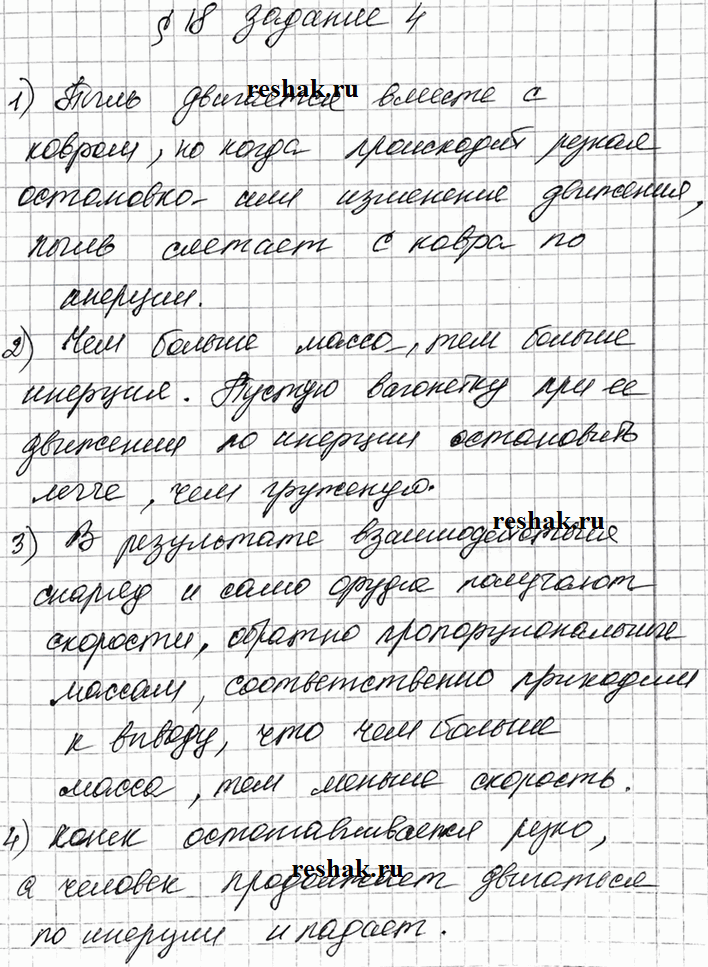 § 18 задание 4
1) Пыль движется вместе с
ковром, но когда происходит резкая
остановка или изменение движения,
пыль слетает с ковра по
инерции.
2) Чем больше масса, тем больше
инерция. Пустую вагонетку при ее
движении по инерции остановить
легче, чем груженую.
3) В результате взаимодействия
снаряд и само орудие получают
скорости, обратно пропорциональные
массам, соответственно приходим
к выводу, что чем больше
масса, тем меньше скорость.
4) Конек останавливается резко,
а человек продолжает двигаться
по инерции и падает.
reshak.ru
reshak.ru
reshak.ru